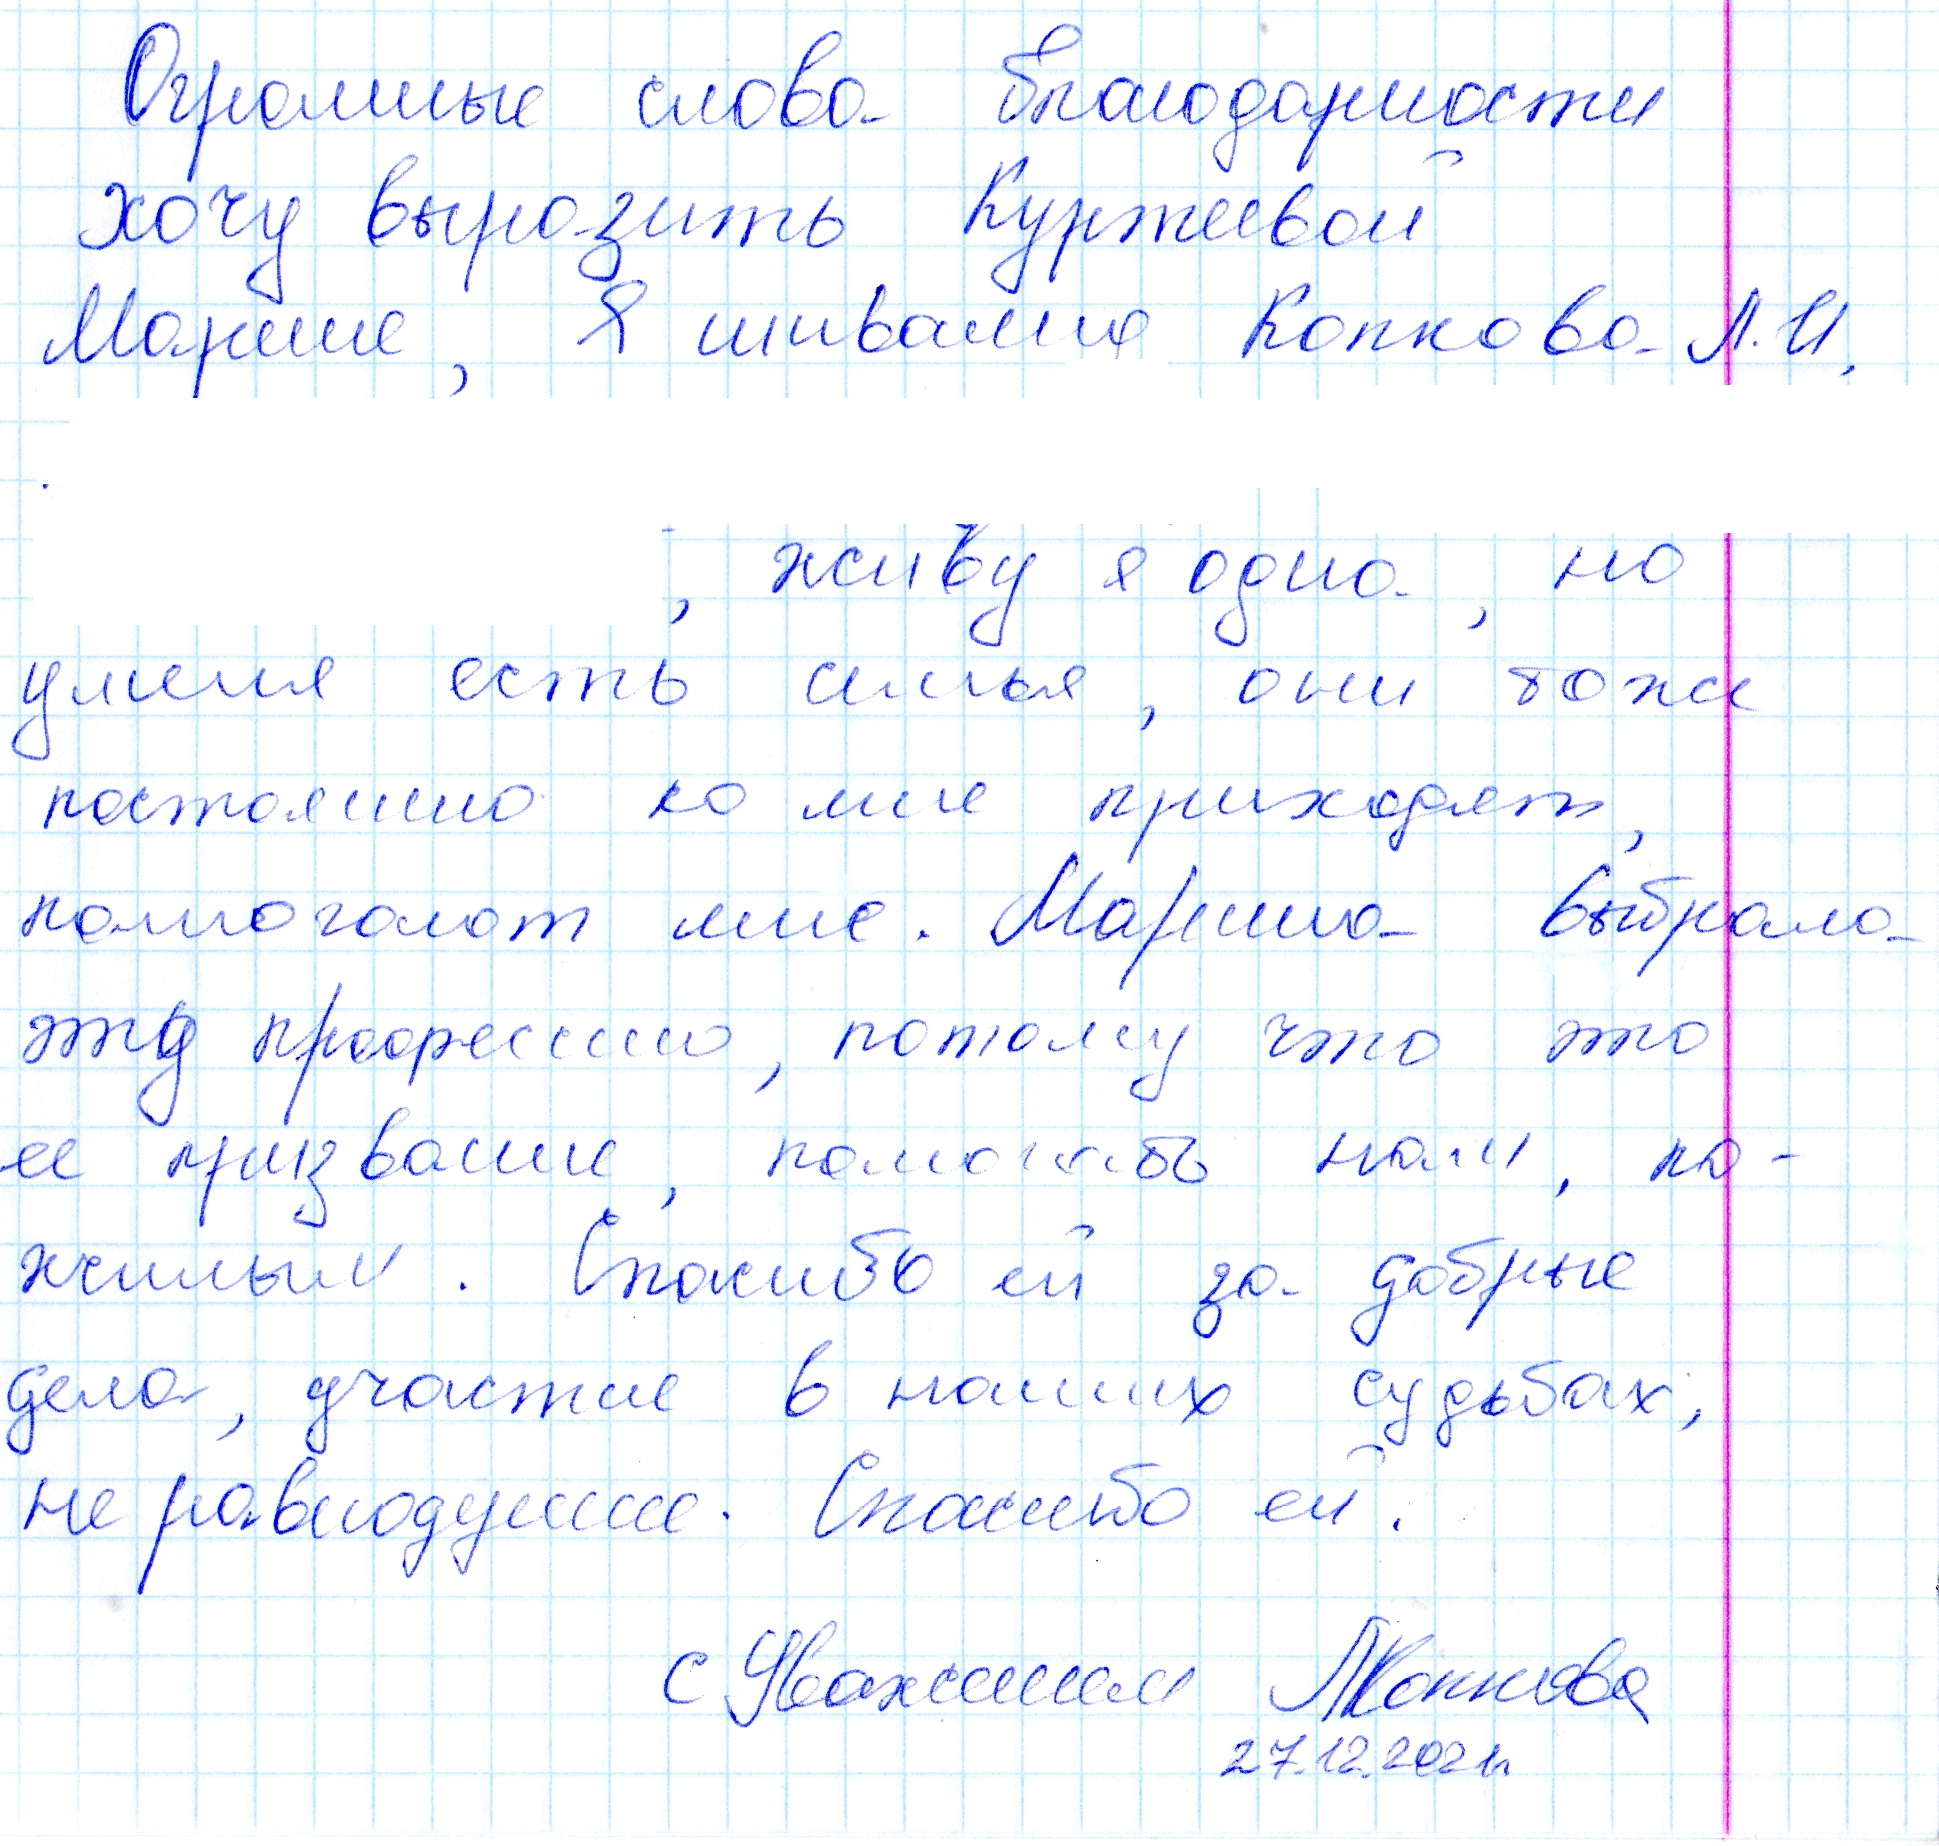 Огромные слова благодарности
хочу выразить Куржеевой
Марине, Я инвалид Копкова Л.И.
, живу я одна, но
уменя есть семья, они тоже
постоянно ко мне приходят,
помогают мне. Марина выбрала
эту профессию, потому что это
ее призвание, помогать нам, по-
жилым. Спасибо ей за добрые
дела, участие в наших судьбах,
не равнодушие. Спасибо ей.
с Уважением ЛКопкова
27.12.2021г